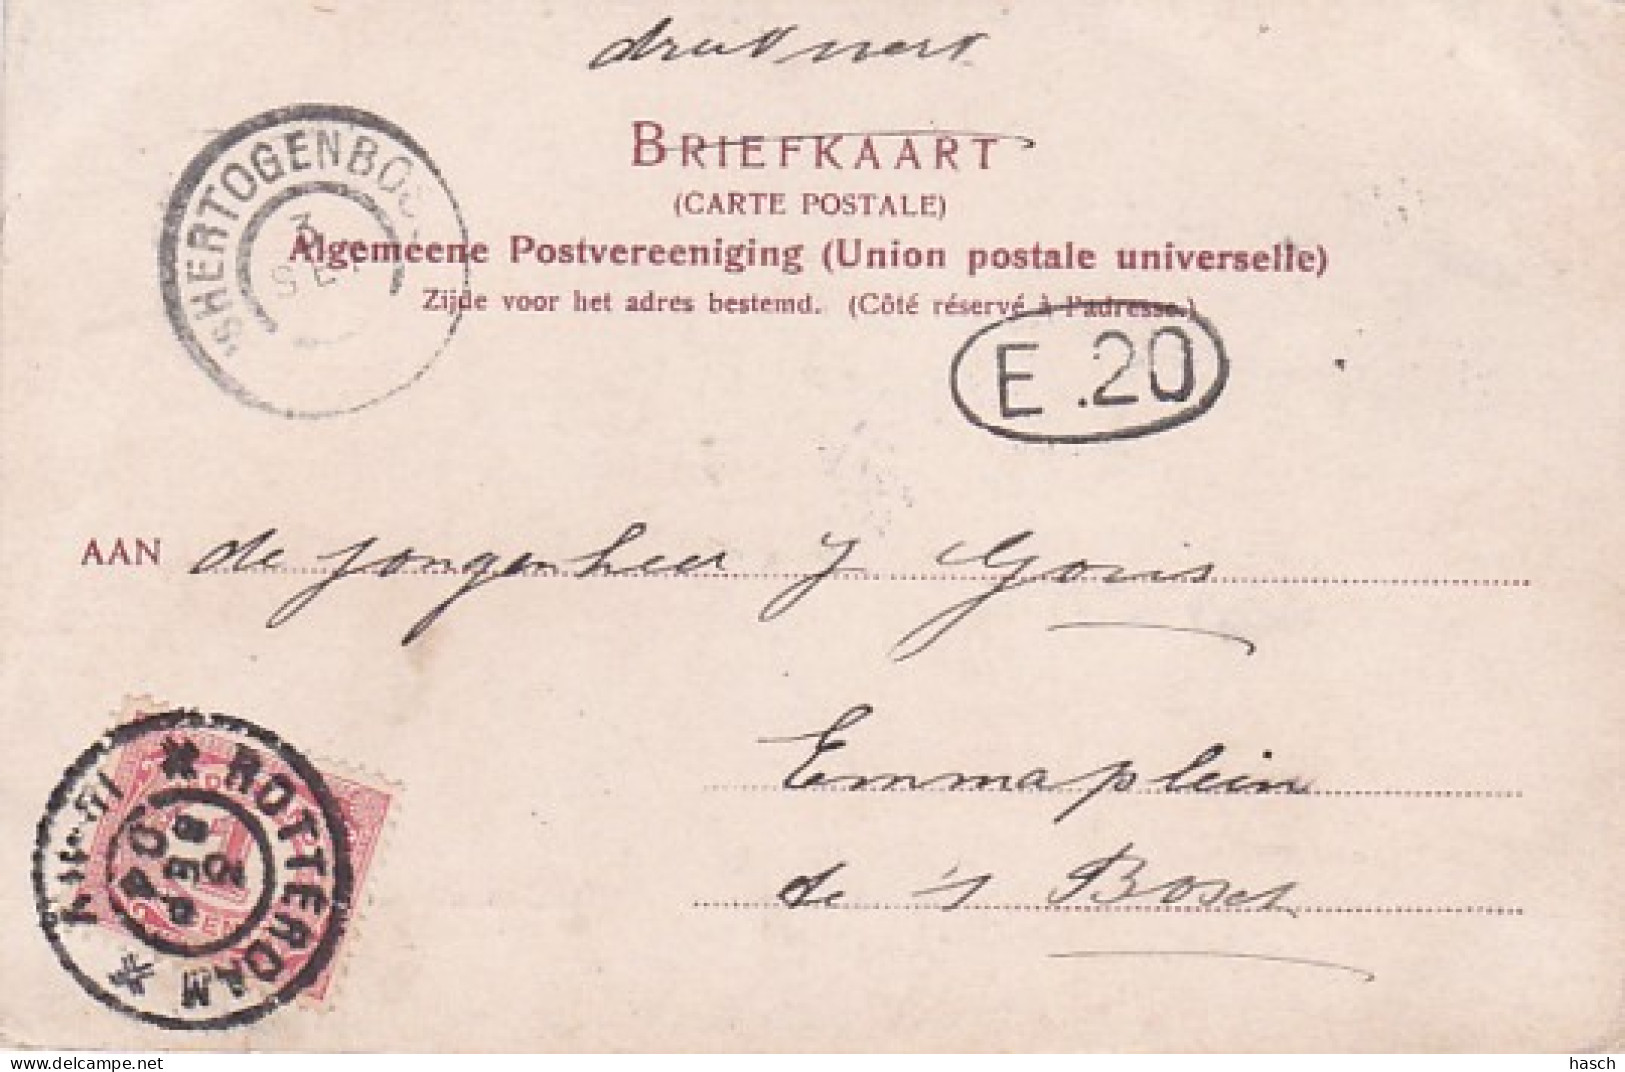 drukwerk
BRIEFKAART
(CARTE POSTALE)
Algemeene Postvereeniging (Union postale universelle)
Zijde voor het adres bestemd. (Côté réservé à l'adresse.)
'SHERTOGENBO
3
SEP
E.20
AAN de jongenheer J Goris
Emmaplein
de 's Bosch
ROTTERDAM
SEP
hasch